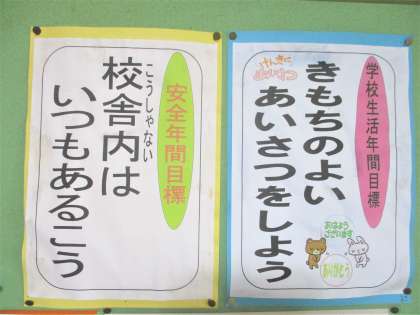 学校生活年間目標
げんきに
あいさつ
きもちのよい
あいさつをしよう
おはよう
ございます
ありがとう
安全年間目標
こうしゃない
校舎内は
いつもあるこう